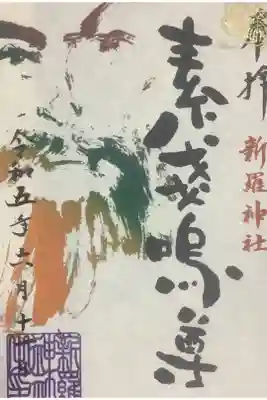 奉拝
新羅神社
素戔嗚尊
令和五年十二月十
新羅
神社